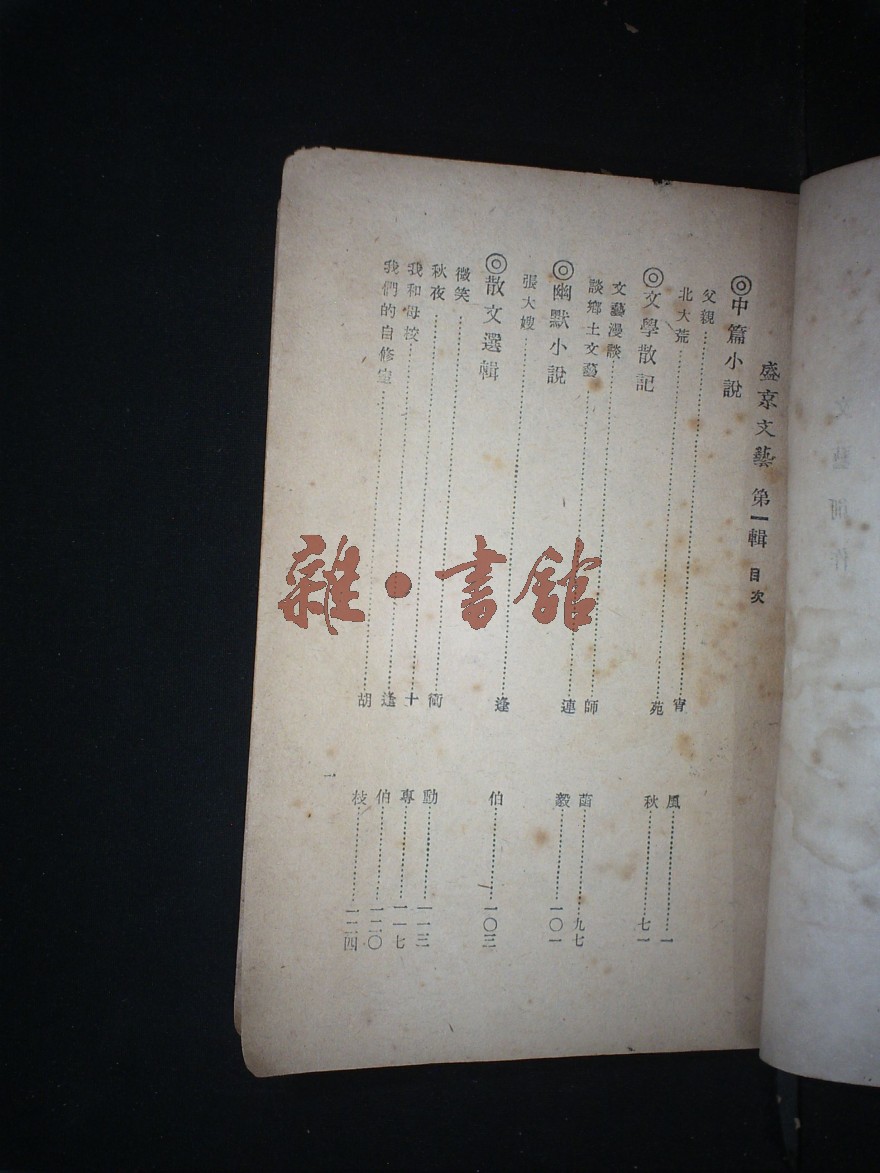 盛京文藝 第一輯 目次
◎中篇小說
父親……宵 風……一
北大荒……苑 秋……七一
◎文學散記
文藝漫談……師 茵……九七
談鄉土文藝……連 毅……一〇一
◎幽默小說
張大嫂……逢 伯……一〇三
◎散文選輯
微笑……衛 動……一一三
秋夜……十 專……一一七
我和母校……逢 伯……一二〇
我們的自修室……胡 枝……一二四
一
雜·書館